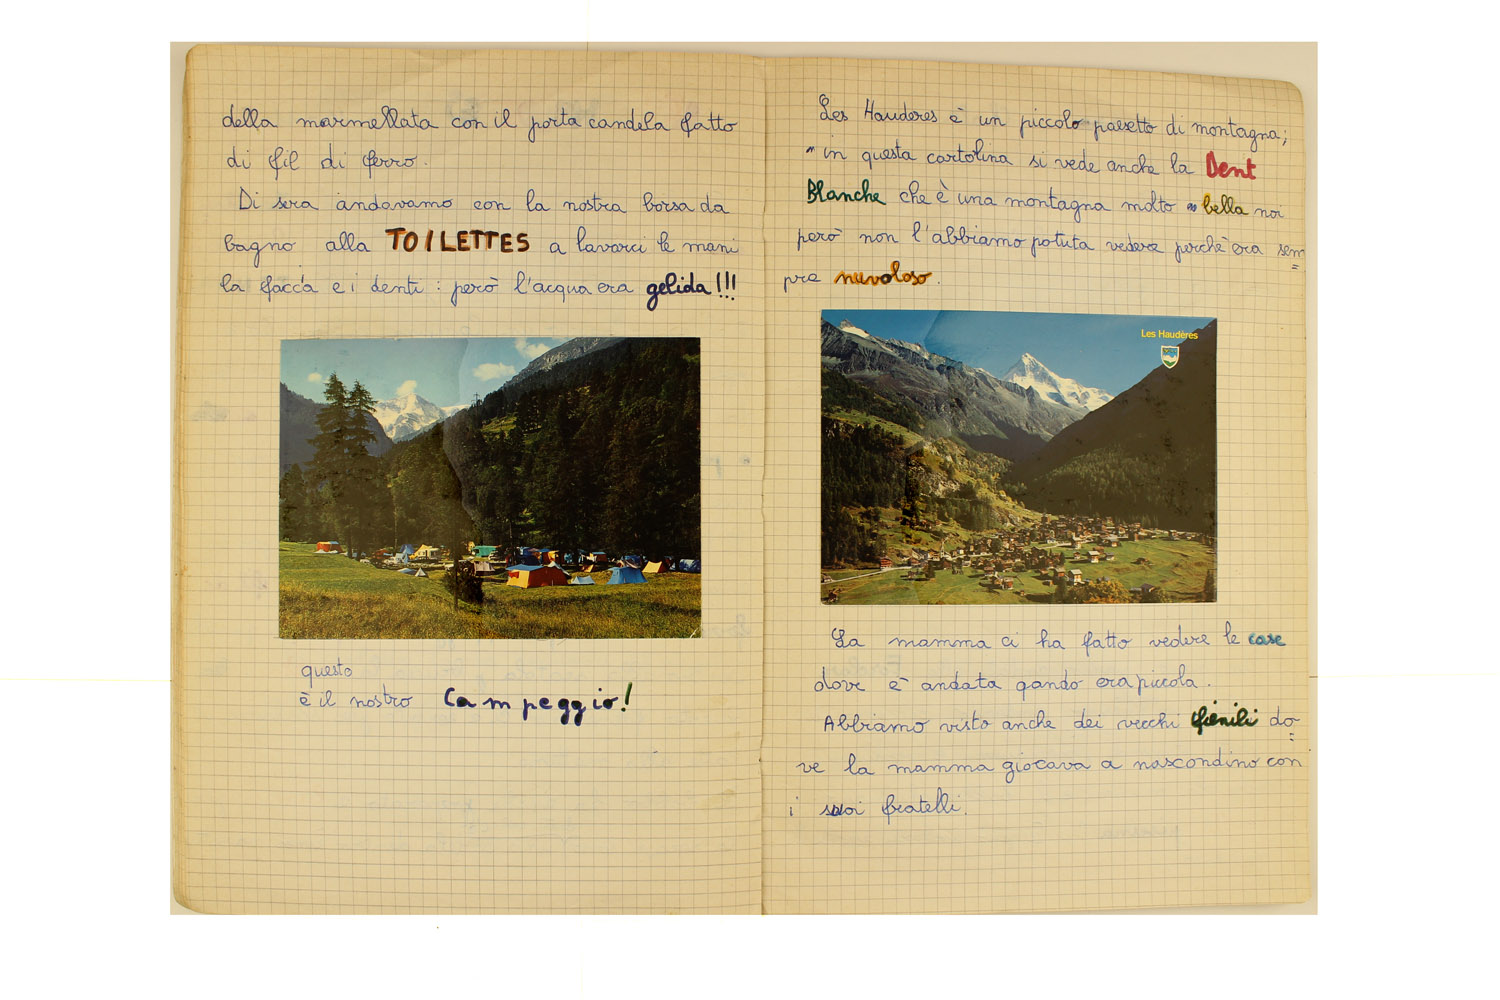 della marmellata con il porta candela fatto
di fil di ferro.
Di sera andavamo con la nostra borsa da
bagno alla TOILETTES a lavarci le mani
la facca e i denti: però l'acqua era gelida!!!
questo
è il nostro Campeggio!
Les Hauderes è un piccolo paesetto di montagna;
in questa cartolina si vede anche la Dent
Blanche che è una montagna molto bella noi
però non l'abbiamo potuta vedere perchè era sem=
pre nuvoloso.
Les Haudères
La mamma ci ha fatto vedere le case
dove è andata qando era piccola.
Abbiamo visto anche dei vecchi fienili do=
ve la mamma giocava a nascondino con
i suoi fratelli.